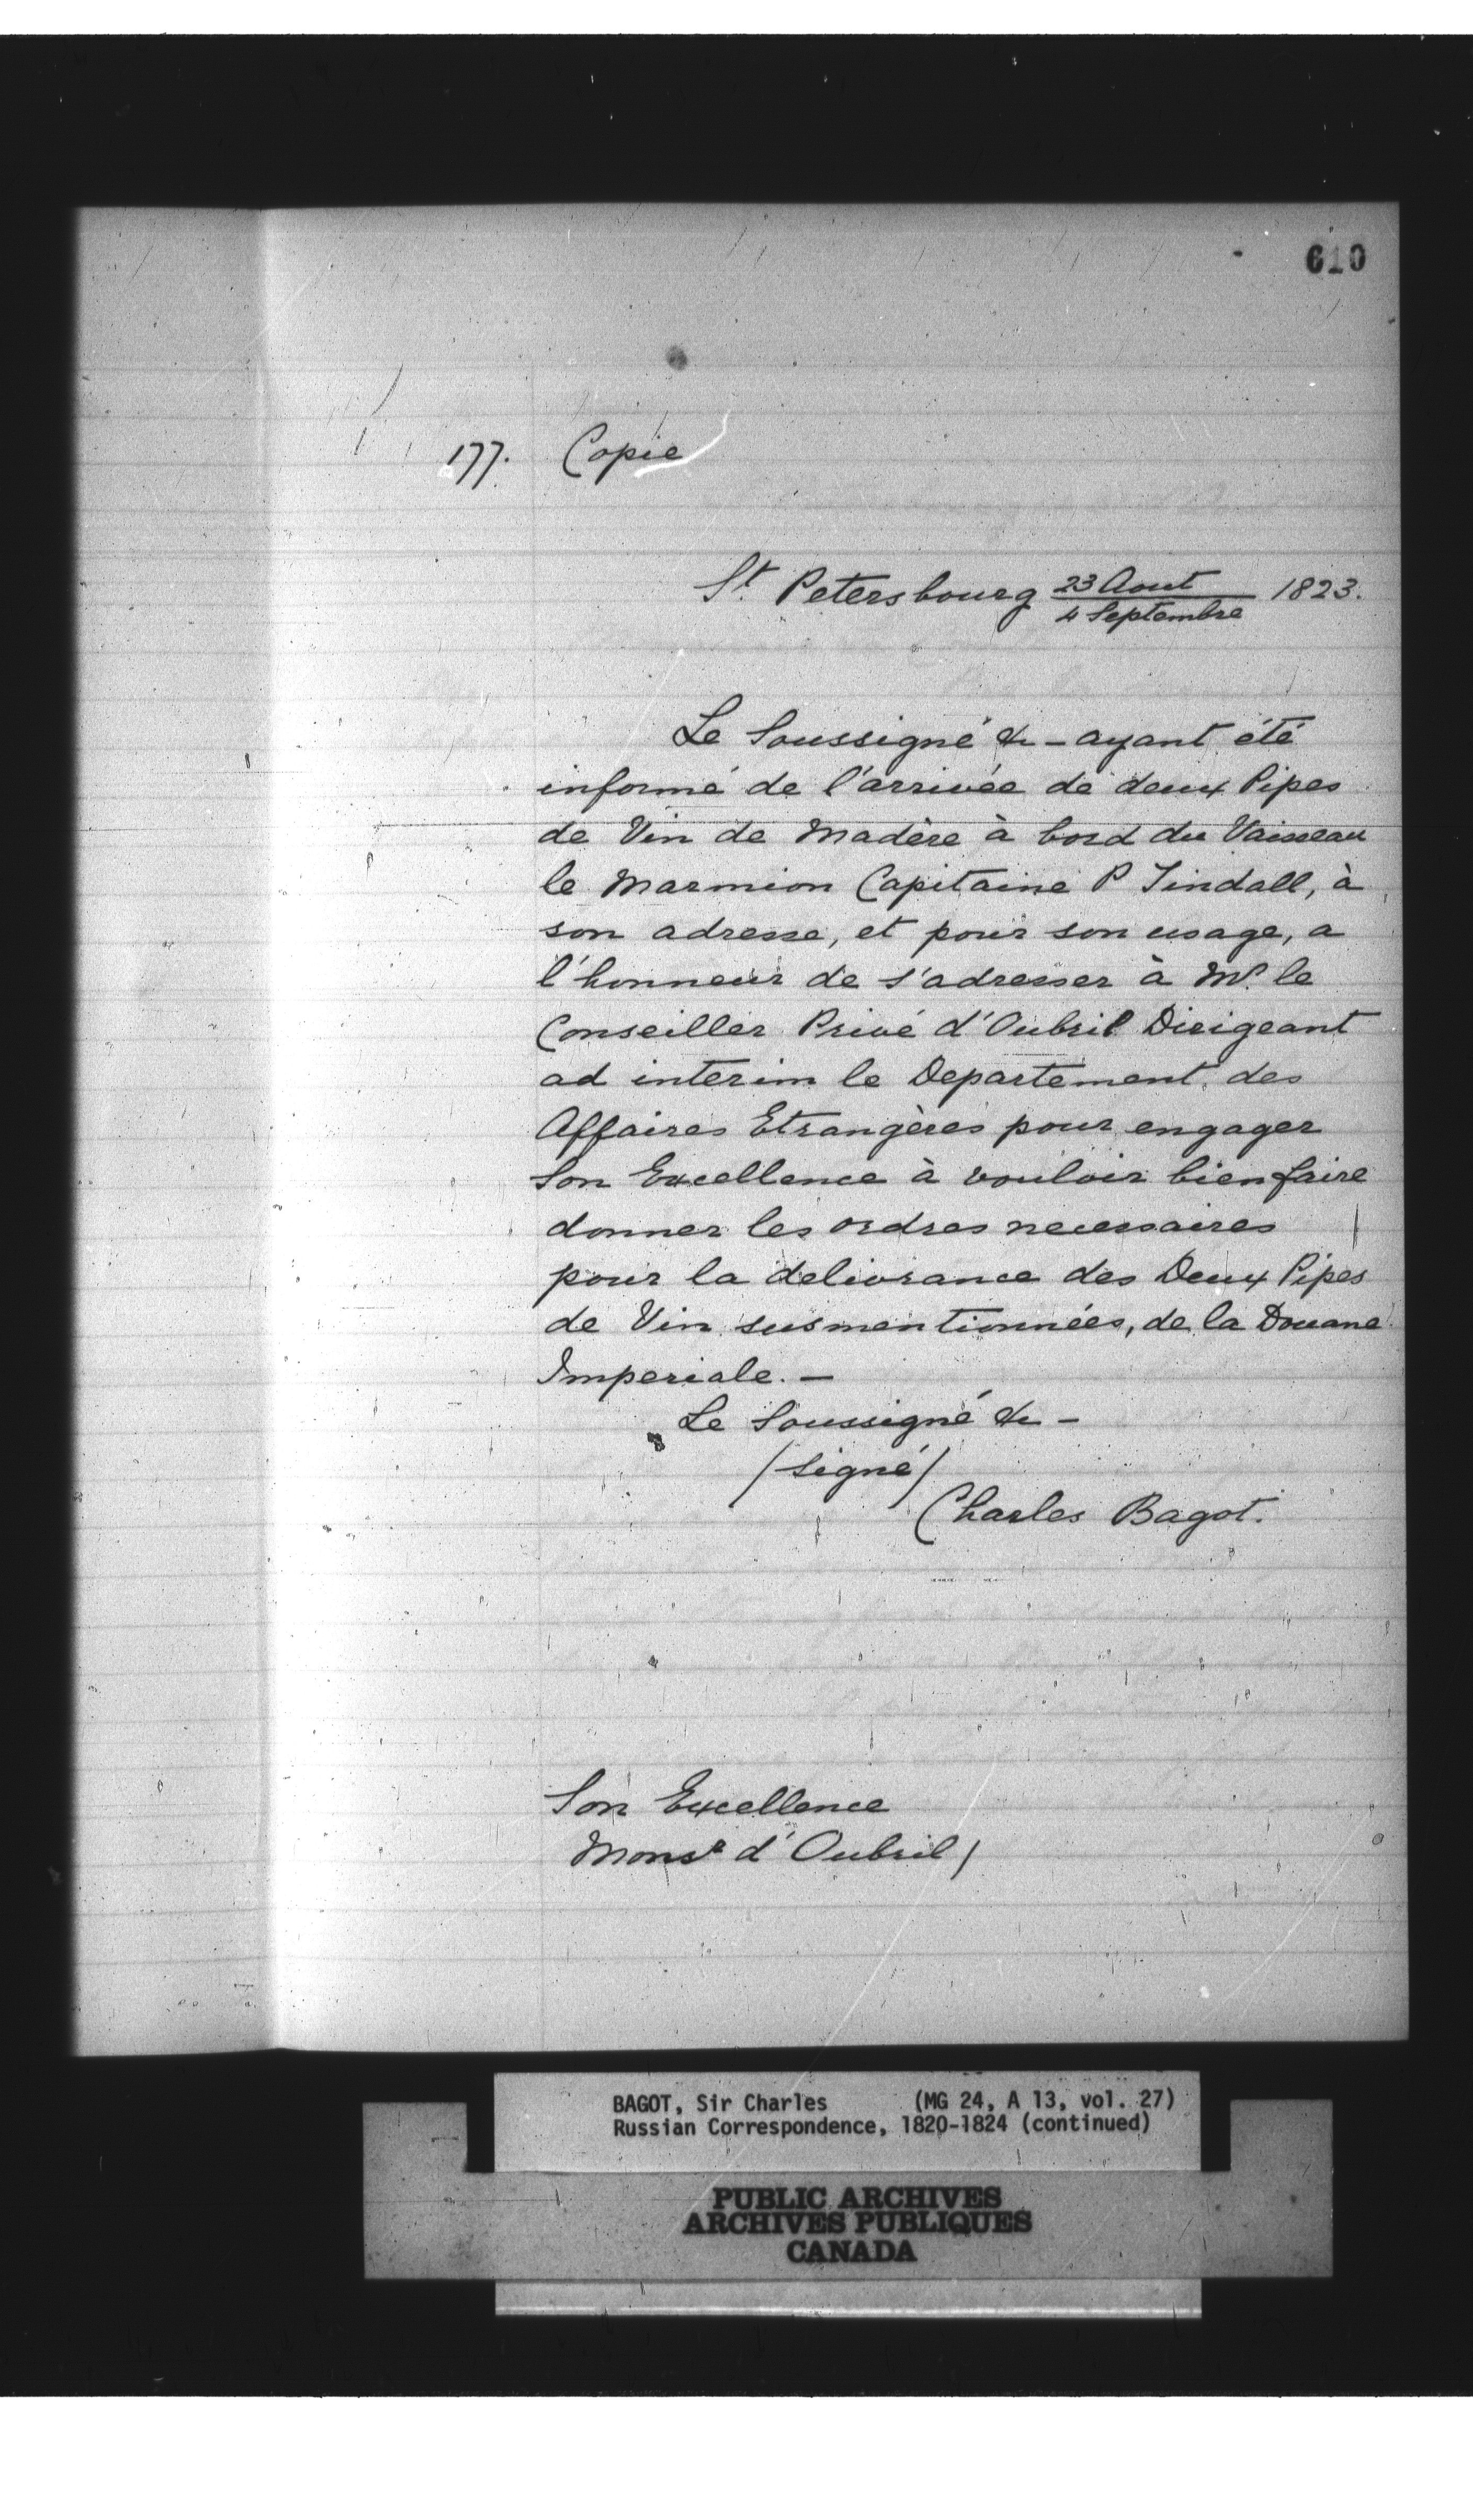 610
177. Copie
St. Petersbourg 23 Aout / 4 Septembre 1823.
Le Soussigné &c – ayant été
informé de l'arrivée de deux Pipes
de Vin de Madère à bord du Vaisseau
le Marmion Capitaine P Tindall, à
son adresse, et pour son usage, a
l'honneur de s'adresser à Mr. le
Conseiller Privé d'Oubril Dirigeant
ad interim le Departement des
Affaires Etrangères pour engager
Son Excellence à vouloir bien faire
donner les ordres necessaires
pour la delivrance des Deux Pipes
de Vin susmentionnées, de la Douane
Imperiale. –
Le Soussigné &c –
/signé/
Charles Bagot.
Son Excellence
Monsr d'Oubril/
BAGOT, Sir Charles (MG 24, A 13, vol. 27)
Russian Correspondence, 1820-1824 (continued)
PUBLIC ARCHIVES
ARCHIVES PUBLIQUES
CANADA